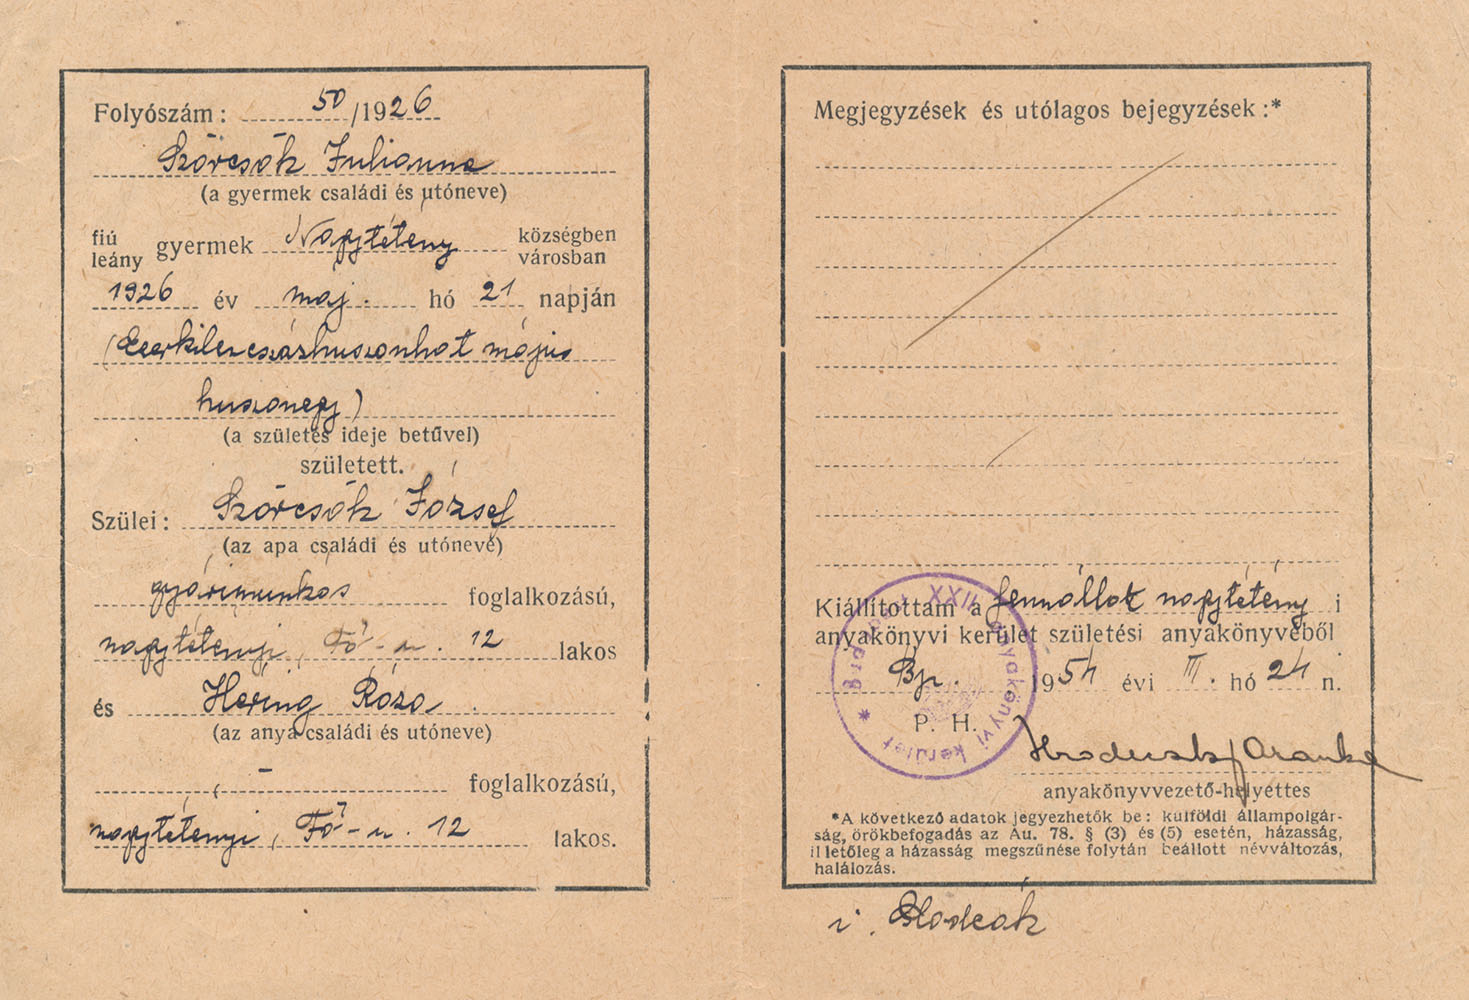 Folyószám: 50/1926
Szörcsök Julianna
(a gyermek családi és utóneve)
fiú
leány gyermek Nagytétény községben
városban
1926 év máj. hó 21 napján
(Ezerkilencszázhuszonhat május
huszonegy)
(a születés ideje betűvel)
született.
Szülei: Szörcsök József
(az apa családi és utóneve)
gyárimunkás foglalkozású,
nagytétényi, Fő-u. 12 lakos
és Héring Róza
(az anya családi és utóneve)
- foglalkozású,
nagytétényi, Fő-u. 12 lakos.
Megjegyzések és utólagos bejegyzések:*
Kiállítottam a fennállott nagytétény i
anyakönyvi kerület születési anyakönyvéből
Bp. 1954 évi III. hó 24 n.
P. H.
Budapest XXII. anyakönyvi kerület *
Aranka
anyakönyvvezető-helyettes
*A következő adatok jegyezhetők be: külföldi állampolgár-
ság, örökbefogadás az Au. 78. § (3) és (5) esetén, házasság,
illetőleg a házasság megszűnése folytán beállott névváltozás,
halálozás.